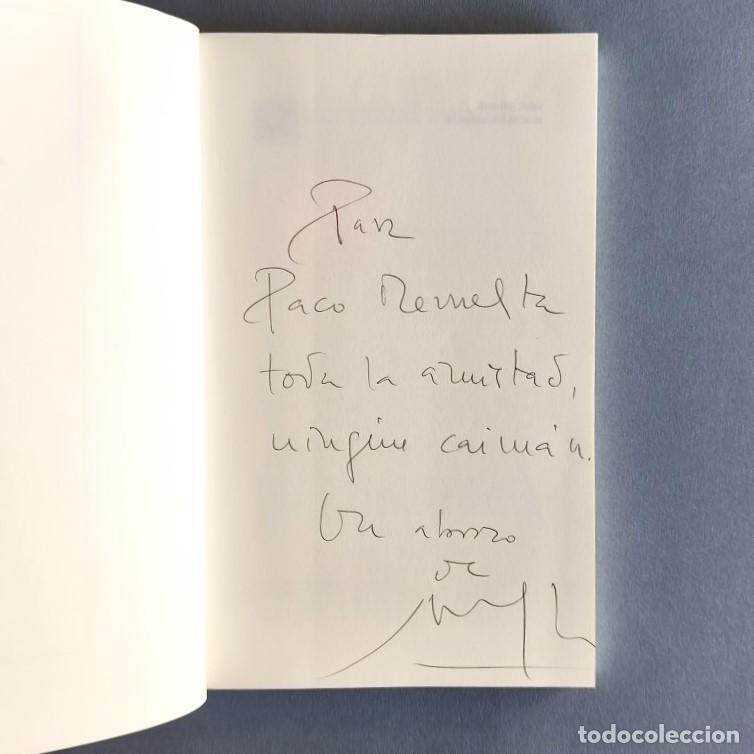 Para
Paco Revuelta
toda la amistad,
ningún caimán.
Un abrazo
de
todocoleccion